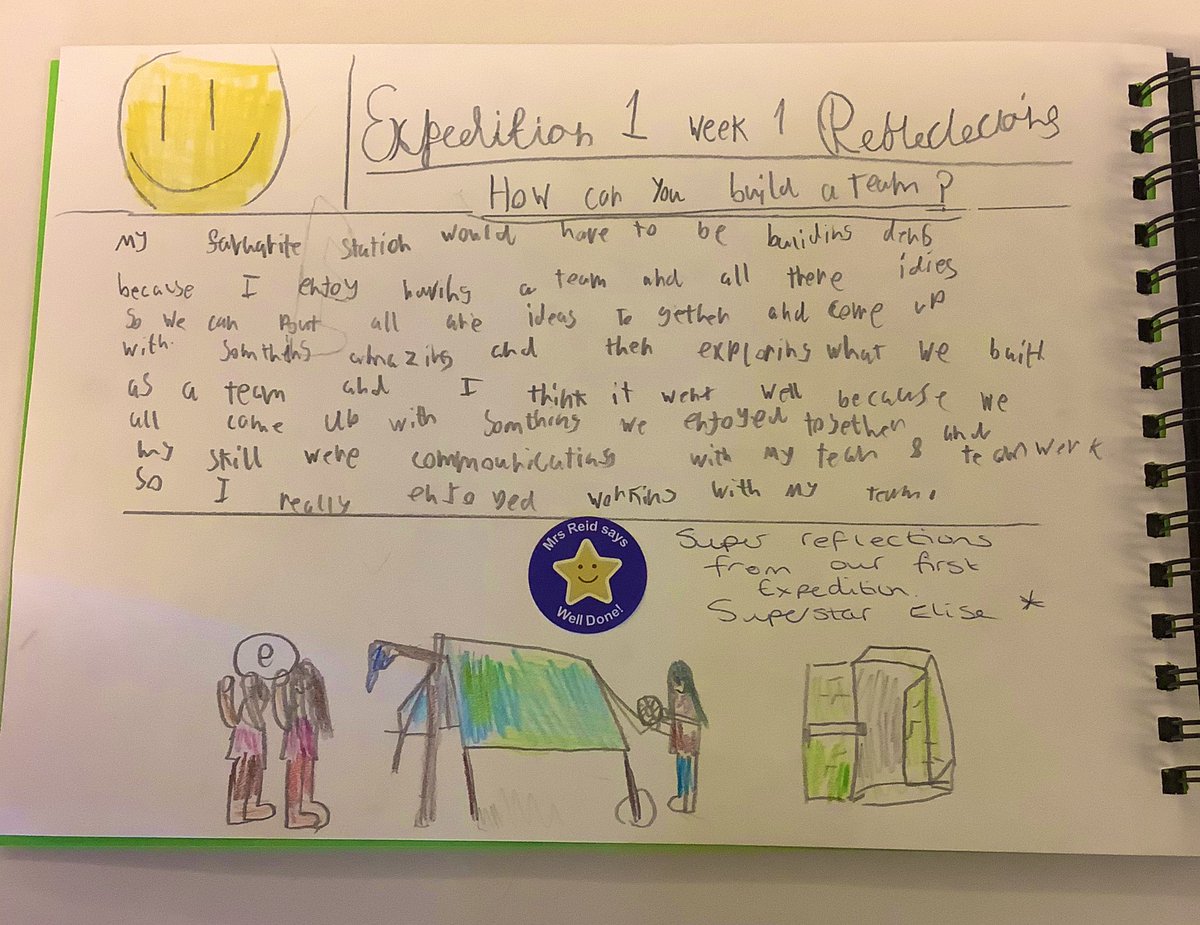 Expedition 1 week 1 Reflections
How can you build a team?
my favuarite station would have to be building dens
because I enjoy having a team and all there idies
so we can put all are ideas to gether and come up
with somthing amazing and then exploring what we built
as a team and I think it went well because we
all came up with somthing we enjoyed together and
my skill were commounicating with my team & teamwerk
so I really enjoyed working with my team.
Mrs Reid says
Well Done!
Super reflections
from our first
Expedition.
Superstar Elise *
e